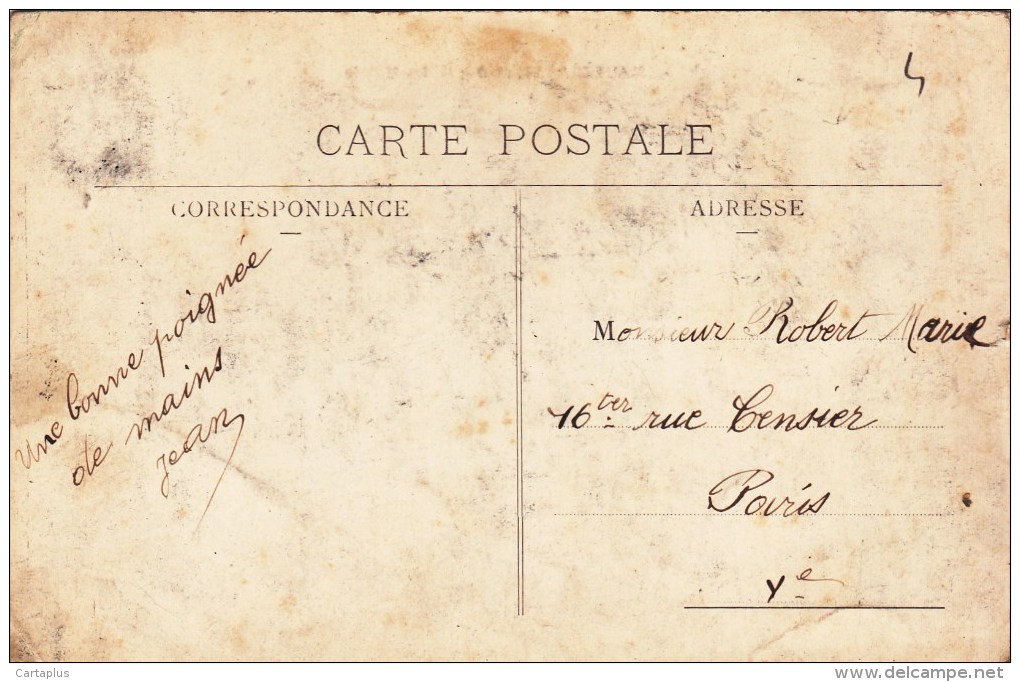 CARTE POSTALE
CORRESPONDANCE
Une bonne poignée
de mains
Jean
ADRESSE
Monsieur Robert Marie
16ter rue Censier
Paris
Ve
Cartaplus
www.delcampe.net